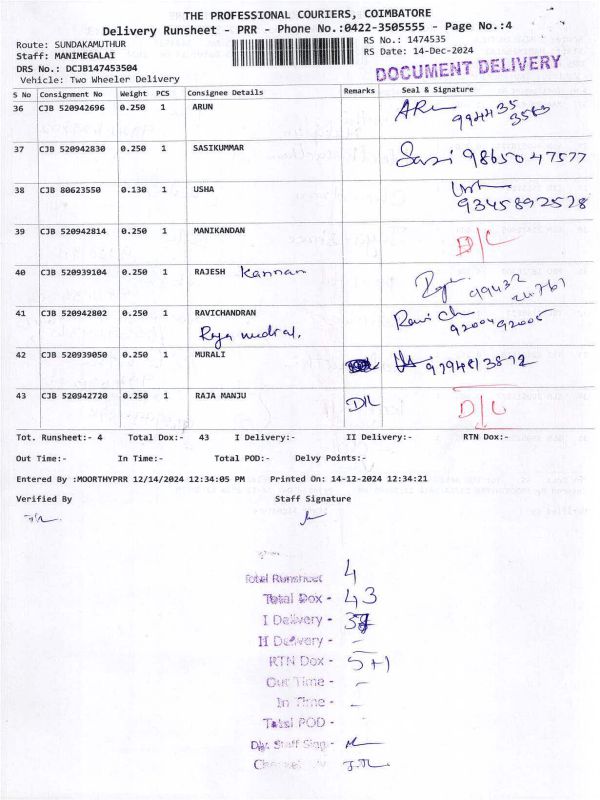 THE PROFESSIONAL COURIERS, COIMBATORE
Delivery Runsheet - PRR - Phone No.:0422-3505555 - Page No.:4
Route: SUNDAKAMUTHUR
Staff: MANIMEGALAI
DRS No.: DCJB147453504
Vehicle: Two Wheeler Delivery
RS No.: 1474535
RS Date: 14-Dec-2024
DOCUMENT DELIVERY
S No Consignment No Weight PCS Consignee Details Remarks Seal & Signature
36 CJB 520942696 0.250 1 ARUN
37 CJB 520942830 0.250 1 SASIKUMMAR Sasi 9865047577
38 CJB 80623550 0.130 1 USHA 9345892578
39 CJB 520942814 0.250 1 MANIKANDAN D/L
40 CJB 520939104 0.250 1 RAJESH Kannan
41 CJB 520942802 0.250 1 RAVICHANDRAN Ravi Ch 9200492005
Raja medical,
42 CJB 520939050 0.250 1 MURALI
43 CJB 520942720 0.250 1 RAJA MANJU D/L D/L
Tot. Runsheet:- 4 Total Dox:- 43 I Delivery:- II Delivery:- RTN Dox:-
Out Time:- In Time:- Total POD:- Delvy Points:-
Entered By :MOORTHYPRR 12/14/2024 12:34:05 PM Printed On: 14-12-2024 12:34:21
Verified By Staff Signature
Total Runsheet 4
Total Dox - 43
I Delivery -
II Delivery - -
RTN Dox - 5+1
Out Time - -
In Time - -
Total POD -
Dly. Staff Sing -